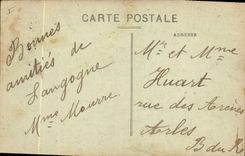 CARTE POSTALE
ADRESSE
Bonnes
amitiés de
Langogne
Mme Mourre
Mr et Mme
Huart
rue des Arènes
Arles
B du R